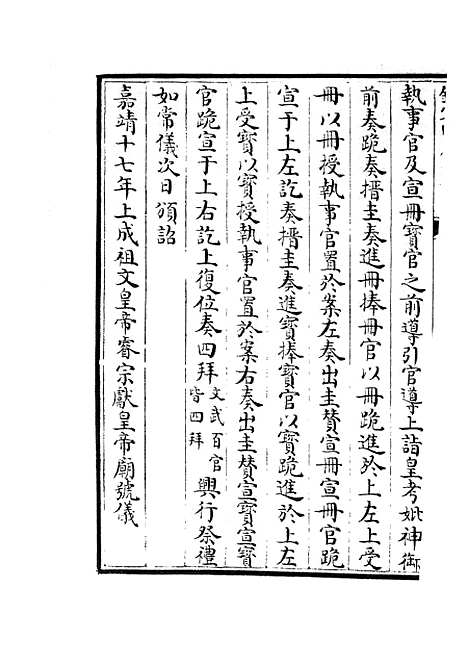 執事官及宣冊寳官之前導引官導上詣皇考妣神御
前奏跪奏搢圭奏進冊捧冊官以冊跪進於上左上受
冊以冊授執事官置於案左奏出圭贊宣冊宣冊官跪
宣于上左訖奏搢圭奏進寳捧寳官以寳跪進於上左
上受寳以寳授執事官置於案右奏出圭贊宣寳宣寳
官跪宣于上右訖上復位奏四拜文武百官皆四拜興行祭禮
如常儀次日頒詔
嘉靖十七年上成祖文皇帝睿宗獻皇帝廟號儀